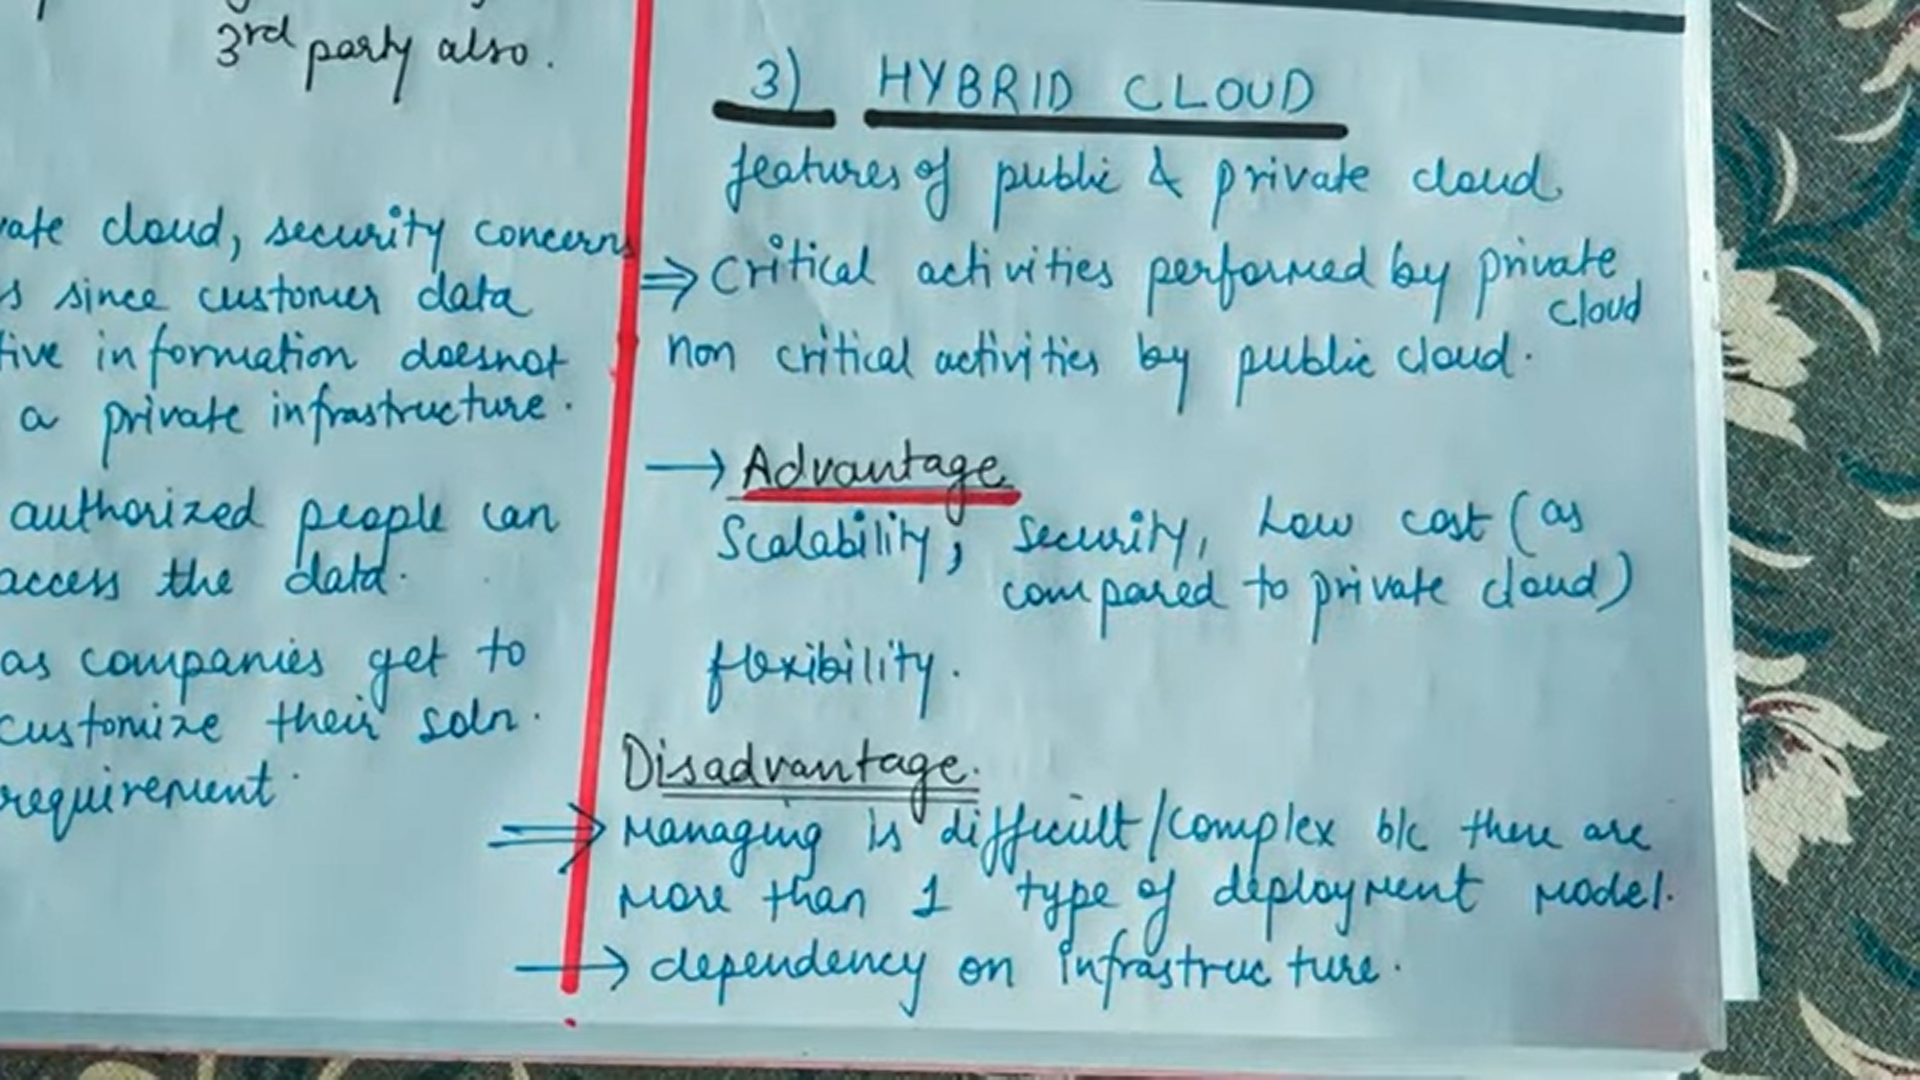 3rd party also.
cloud, security concerns
since customer data
information doesnot
a private infrastructure.
authorized people can
access the data.
as companies get to
customize their soln.
requirement.
3) HYBRID CLOUD
features of public & private cloud
⇒ Critical activities performed by private
cloud
non critical activities by public cloud.
→ Advantage
Scalability, Security, Low cost (as
compared to private cloud)
flexibility.
Disadvantage.
⇒ Managing is difficult/complex b/c there are
more than 1 type of deployment model.
→ dependency on infrastructure.